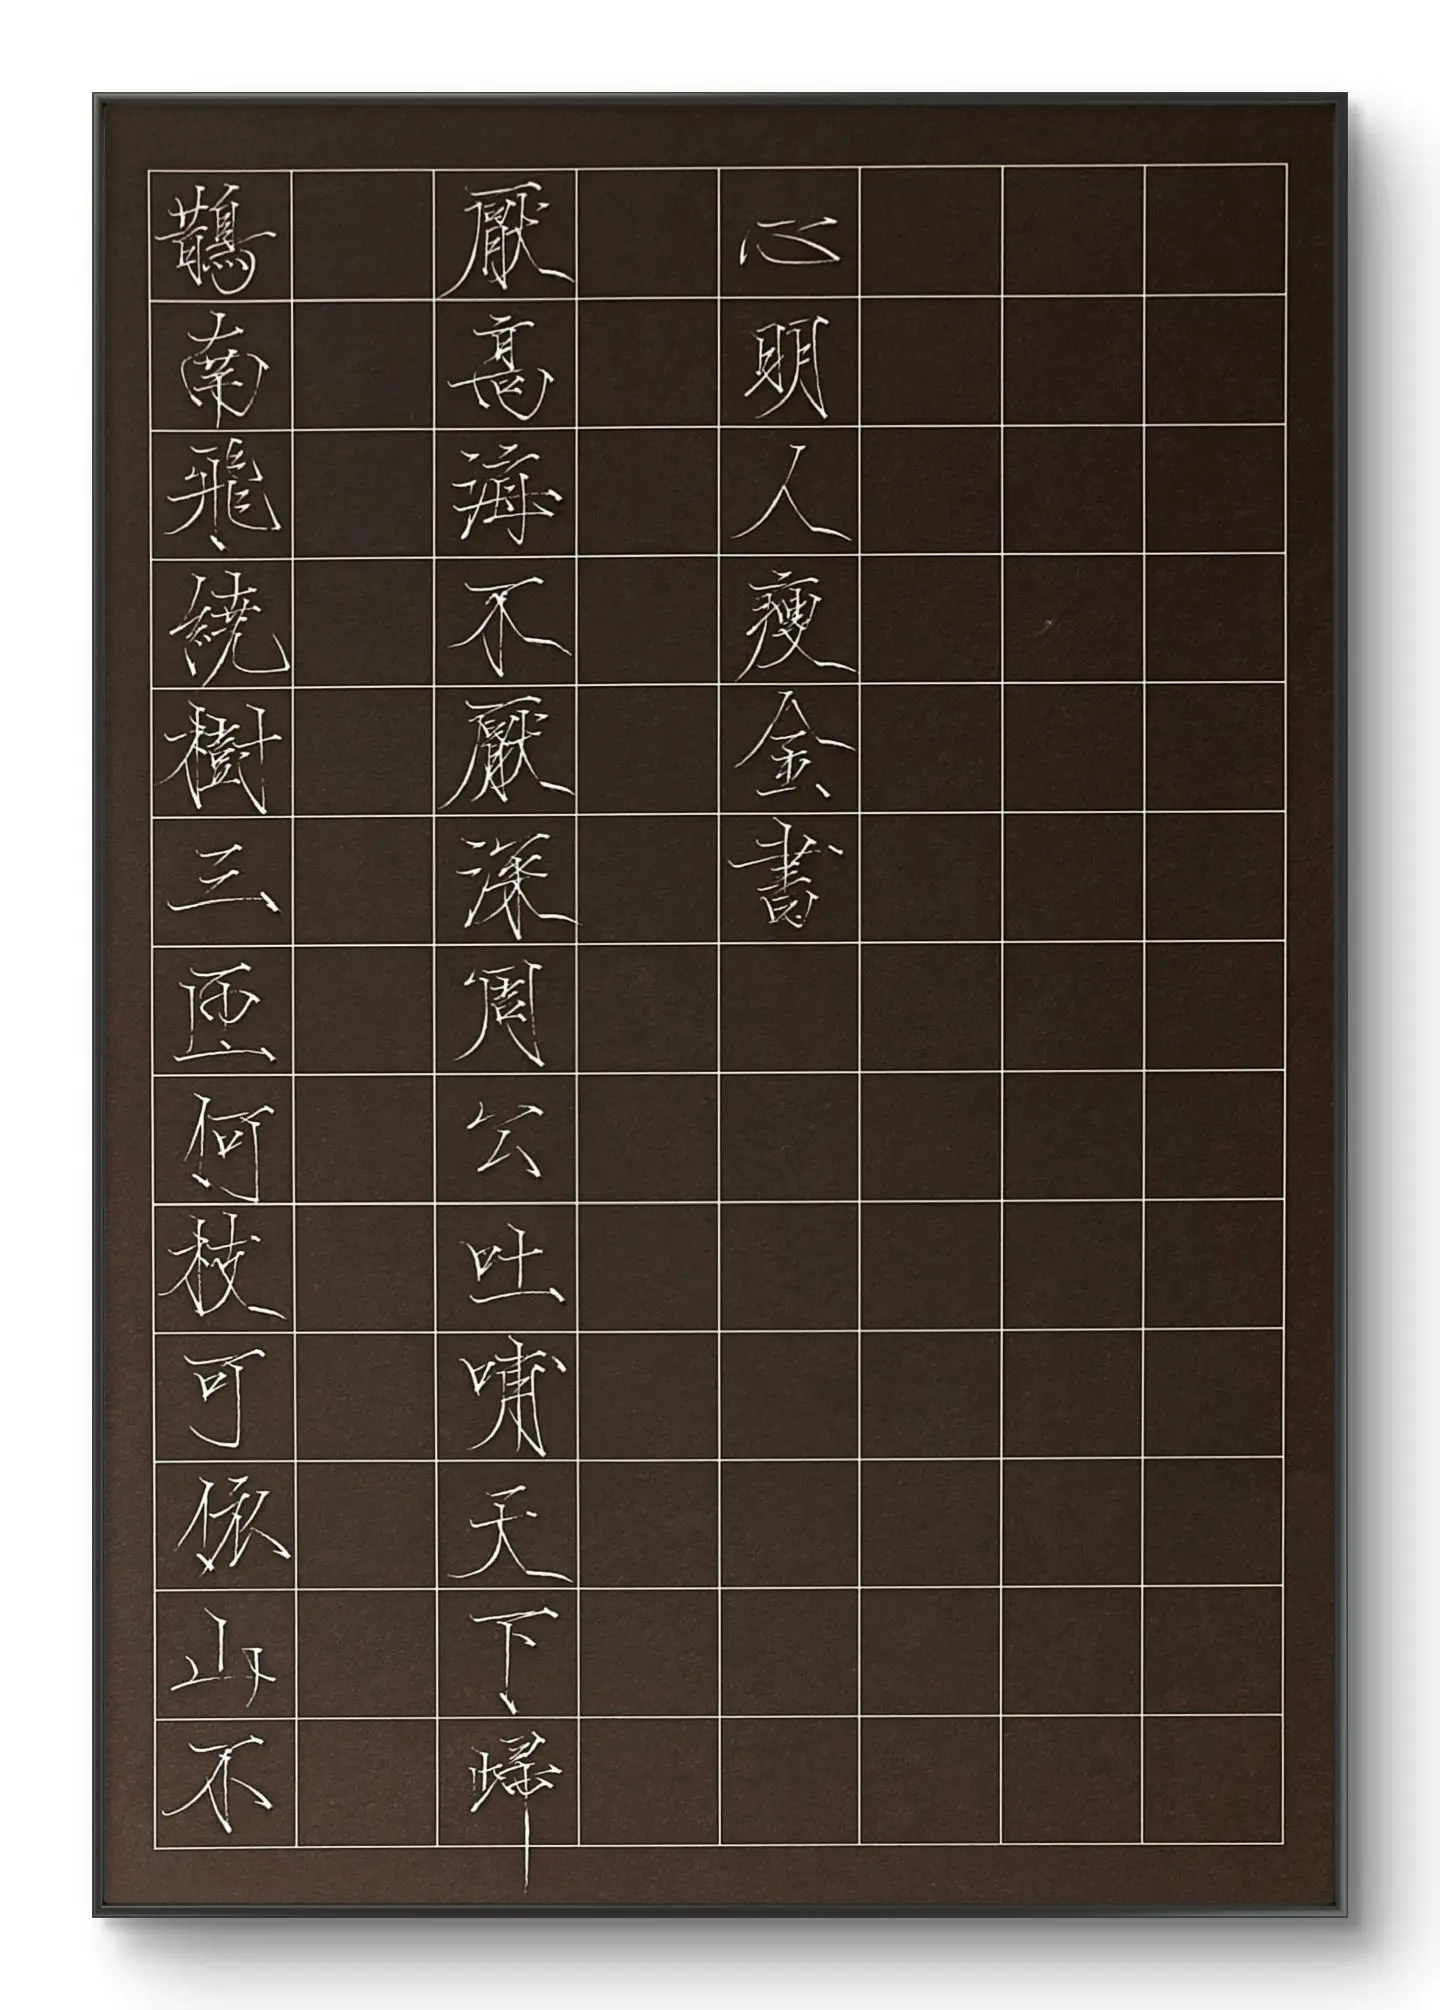 鵲南飛繞樹三匝何枝可依山不
厭高海不厭深周公吐哺天下歸
心明人瘦金書